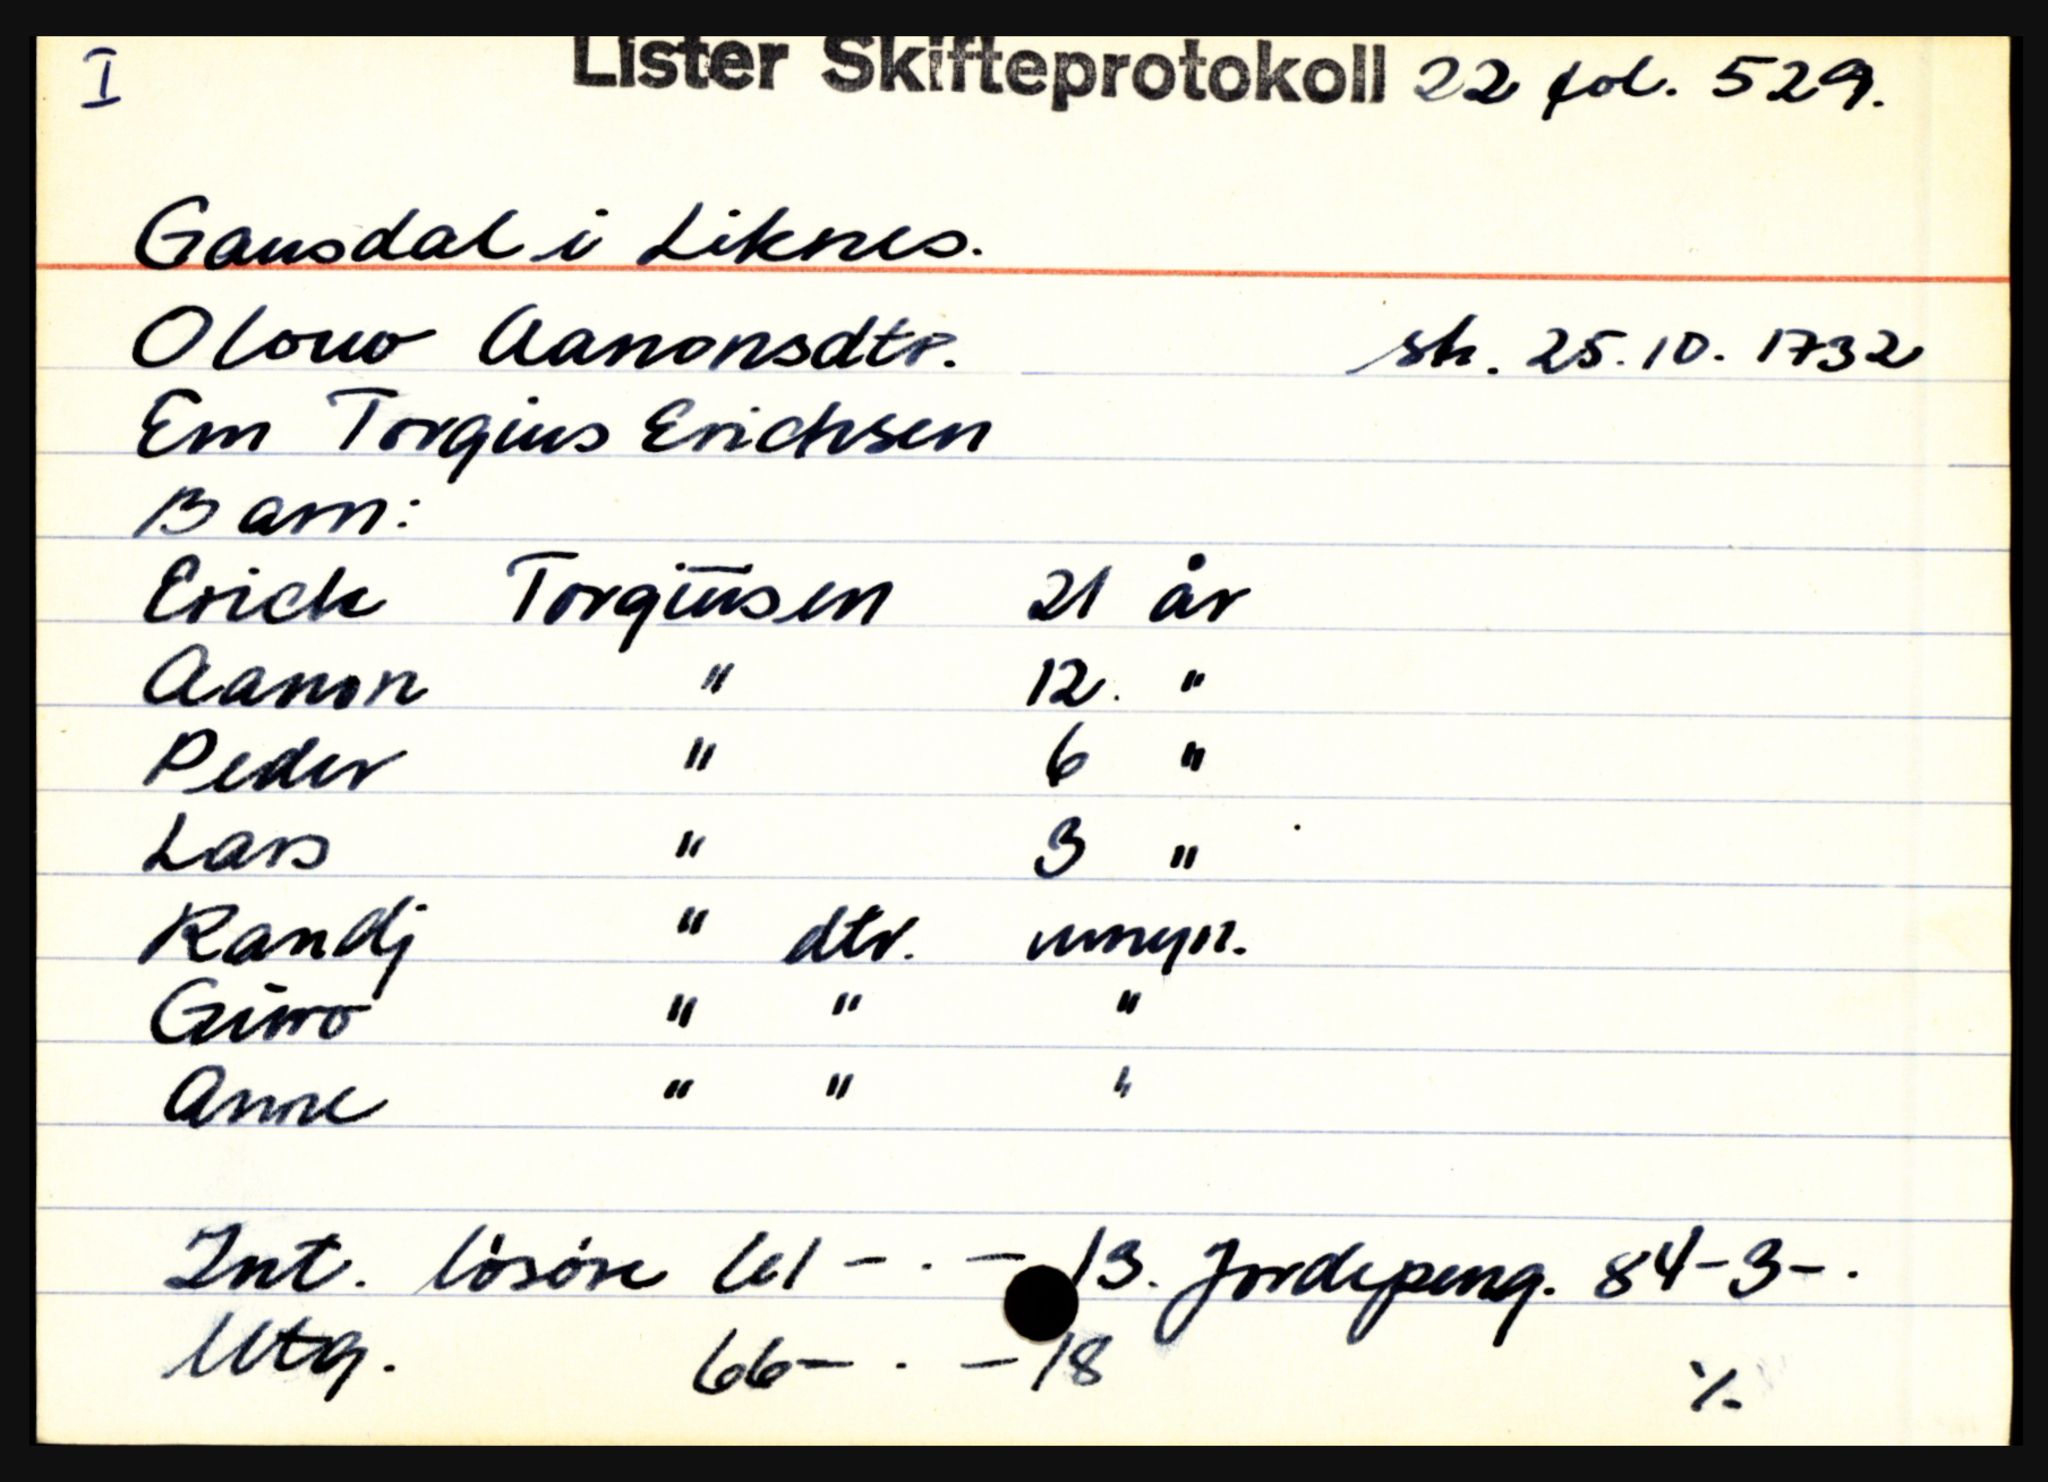 I Lister Skifteprotokoll 22 fol. 529.
Gausdal i Liknes.
Olouo Aanonsdtr. sk. 25.10.1732
Em Torgius Erichsen
Barn:
Erick Torgiusen 21 år
Aanon " 12. "
Peder " 6 "
Lars " 3 "
Randj " dtr. umyn.
Guro " " "
Anne " " "
Int. lösöre 61 - . - 13. Jordepeng. 84-3- .
Utg. 66 - . - 18
·/.